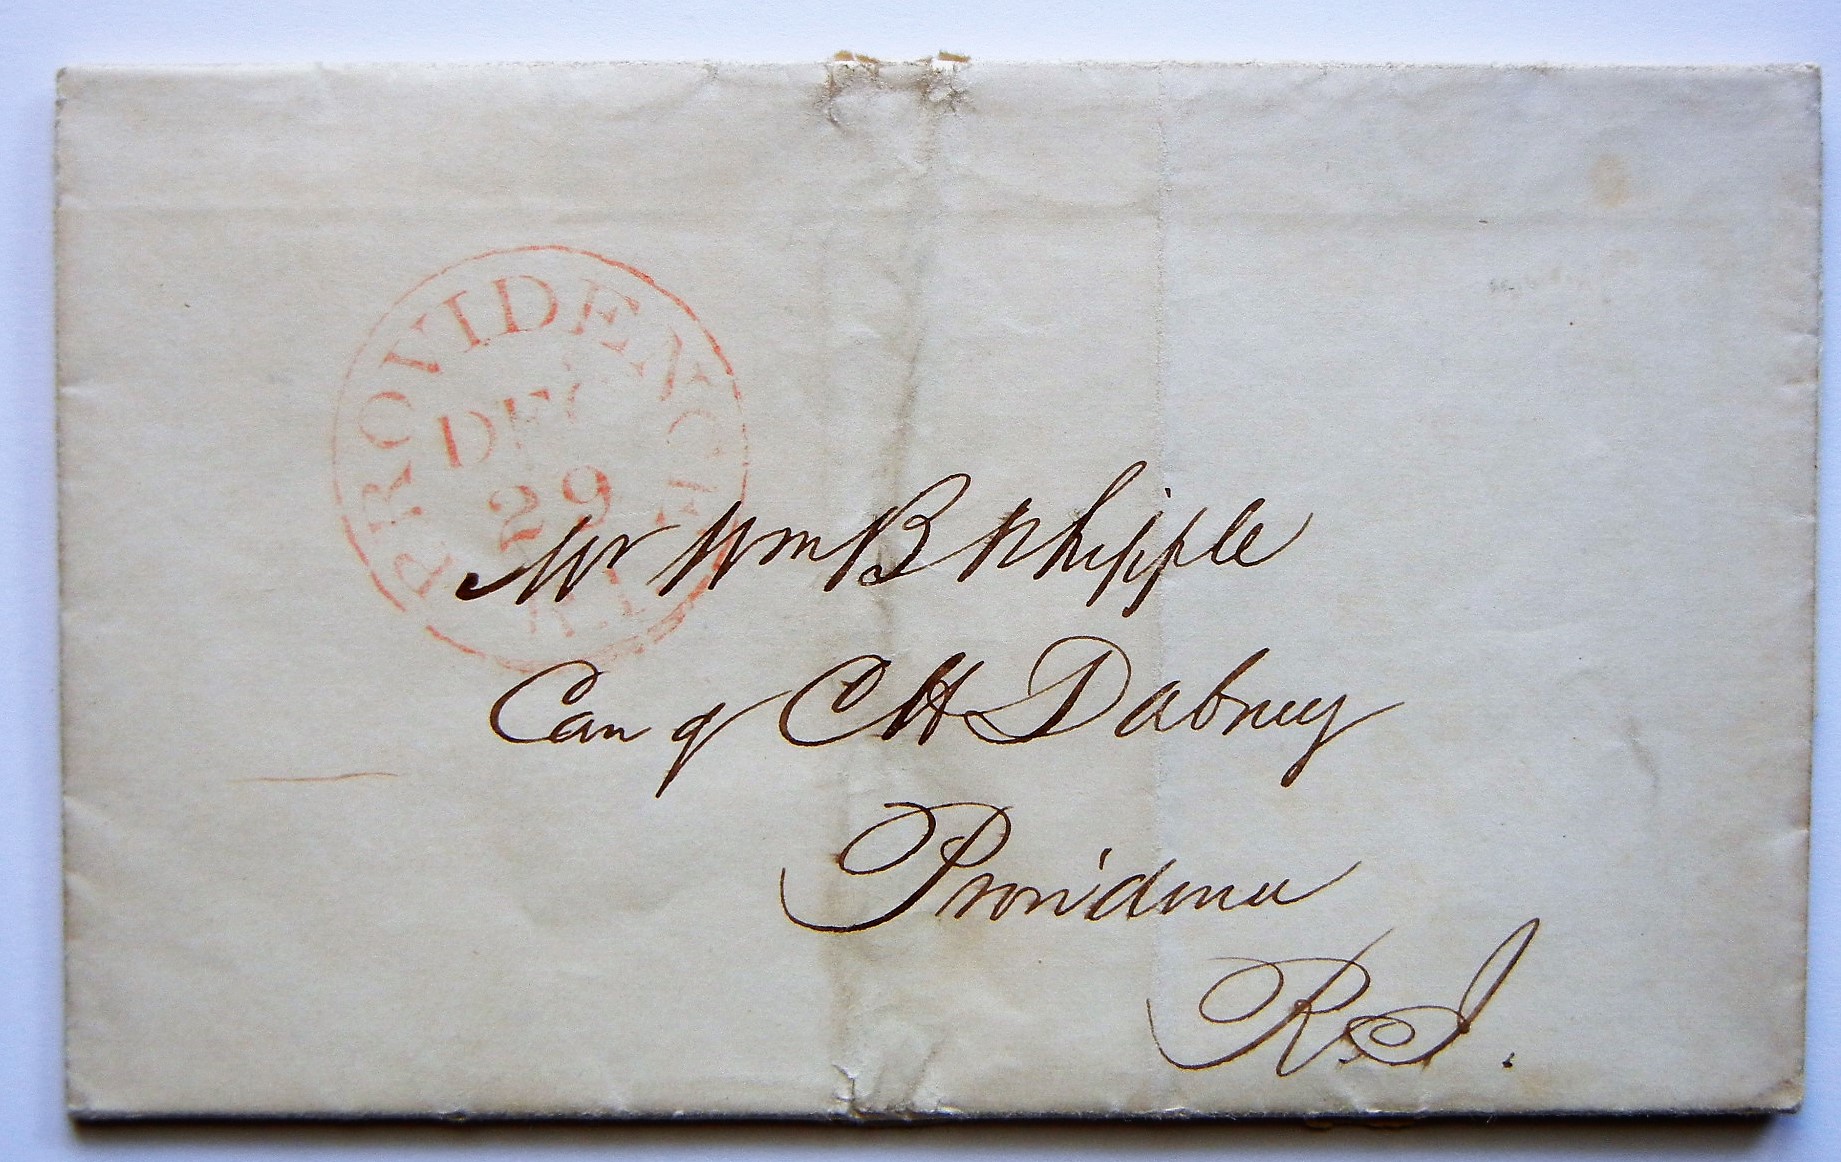 PROVIDENCE
DEC
29
R.I.
Mr Wm B Whipple
Care of C H Dabney
Providence
R. I.